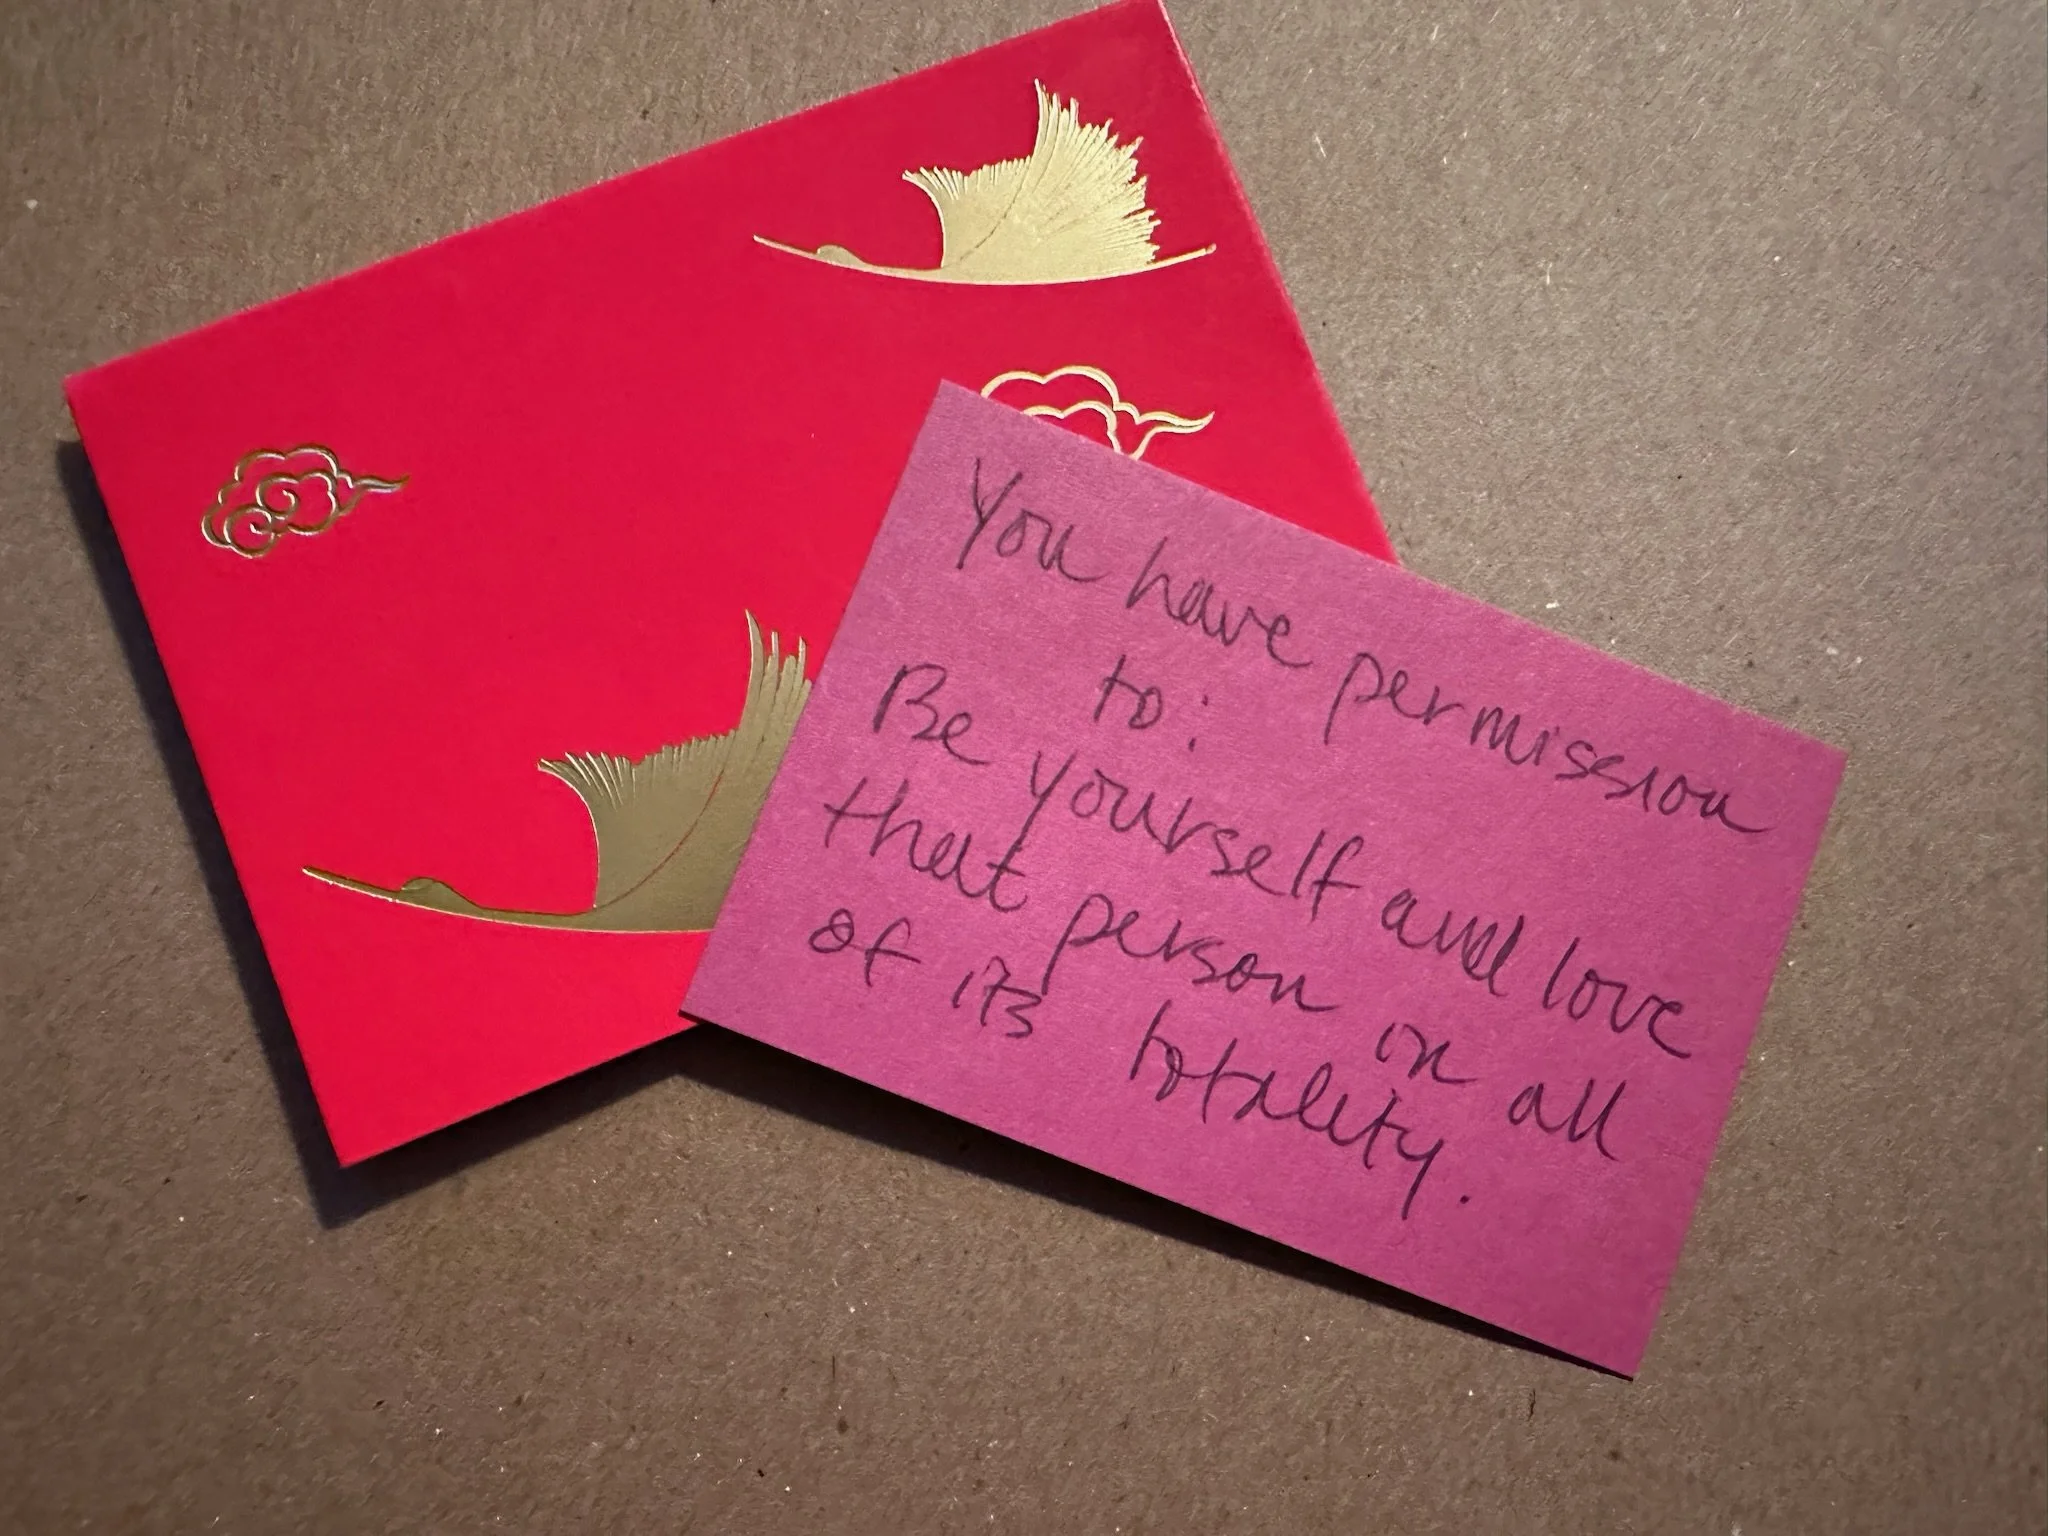 You have permission
to:
Be yourself and love
that person in all
of its totality.